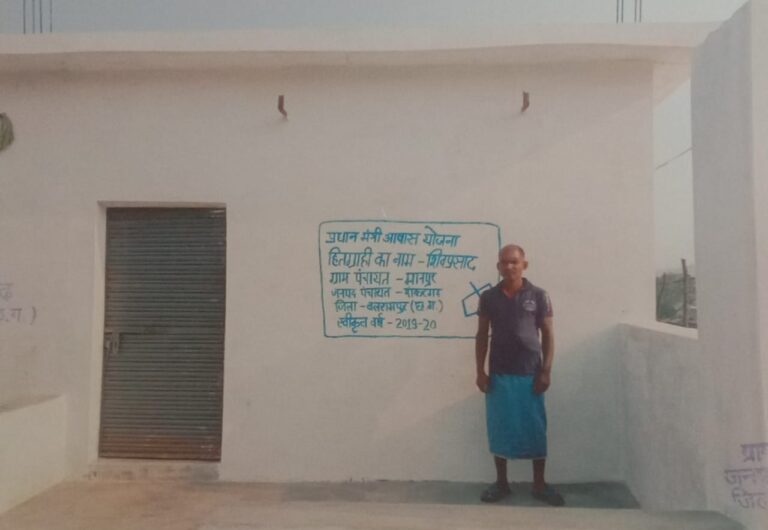 प्रधान मंत्री आवास योजना
हितग्राही का नाम - शिवप्रसाद
ग्राम पंचायत - मानपुर
जनपद पंचायत - शंकरगढ़
जिला - बलरामपुर (छ.ग.)
स्वीकृत वर्ष - 2019-20
.ग.)
ग्रा
जनप
जिल